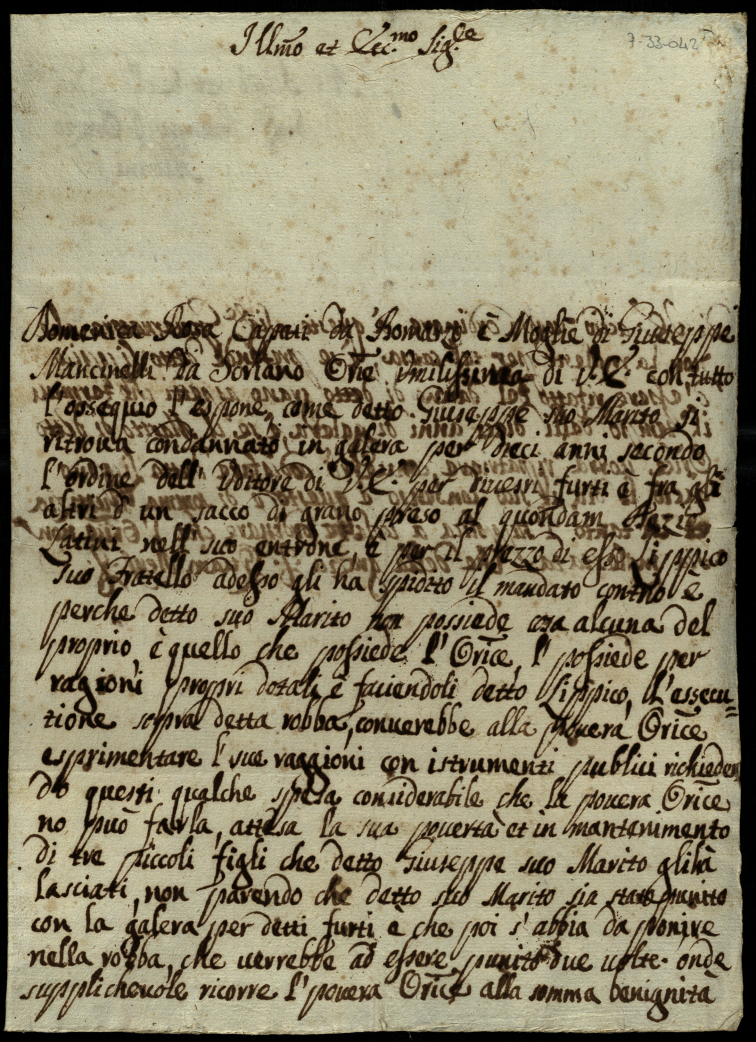 Illmo et Ecc.mo Sig.re
7-33-042
Domenica Rosa Cappati da Bomarzo è Moglie di Giuseppe
Mancinelli da Soriano Orice Umilissima di V.E. con tutto
l'ossequio l'espone, come detto Giuseppe suo Marito si
ritroua condannato in galera per Dieci anni secondo
l'ordine dell' Vditore di V.E. per diuersi furti è fra gli
altri d'un sacco di grano preso al quondam
Latini nell' suo entrone, è per il prezzo di esso Lippico
suo Fratello adesso gli ha spiccto il mandato contro è
perche detto suo Marito non possiede cosa alcuna del
proprio è quello che possiede l'Orice, l'possiede per
ragioni propri dotali è faciendoli detto Lippico, ll'essecu=
tione sopra detta robba, conuerebbe alla pouera Orice
esprimentare l'sue raggioni con istrumenti publici richieden
do questi qualche spesa considerabile che la pouera Orice
no può farla, attesa la sua pouertà et in mantenimento
di tre piccoli figli che detto Giuseppe suo Marito glihà
lasciati, non parendo che detto suo Marito sia state punito
con la galera per detti furti è che poi s'abbia da ponire
nella robba, che uerrebbe ad essere punito due uolte. onde
supplicheuole ricorre l'pouera Orice alla somma benignità